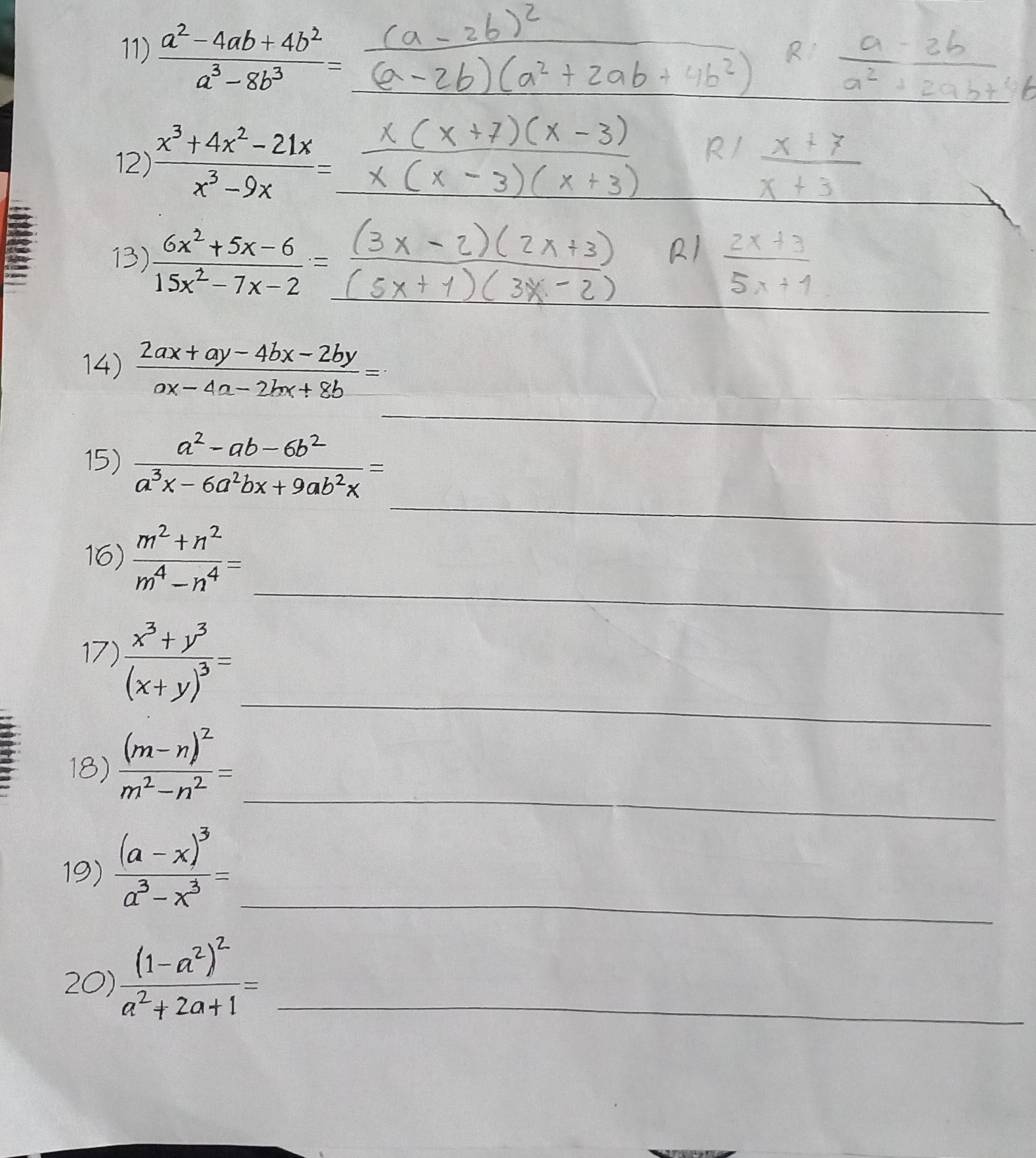 11) (a² - 4ab + 4b²)/(a³ - 8b³) = (a - 2b)²/((a - 2b)(a² + 2ab + 4b²)) R: (a - 2b)/(a² + 2ab + 4b
12) (x³ + 4x² - 21x)/(x³ - 9x) = x(x+7)(x - 3)/(x(x - 3)(x + 3)) R/ (x + 7)/(x + 3)
13) (6x² + 5x - 6)/(15x² - 7x - 2) = (3x - 2)(2x+3)/((5x+1)(3x - 2)) R/ (2x + 3)/(5x + 1)
14) (2ax + ay - 4bx - 2by)/(ax - 4a - 2bx + 8b) =
15) (a² - ab - 6b²)/(a³x - 6a²bx + 9ab²x) =
16) (m² + n²)/(m⁴ - n⁴) =
17) (x³ + y³)/(x + y)³ =
18) (m - n)²/(m² - n²) =
19) (a - x)³/(a³ - x³) =
20) (1 - a²)²/(a² + 2a + 1) =